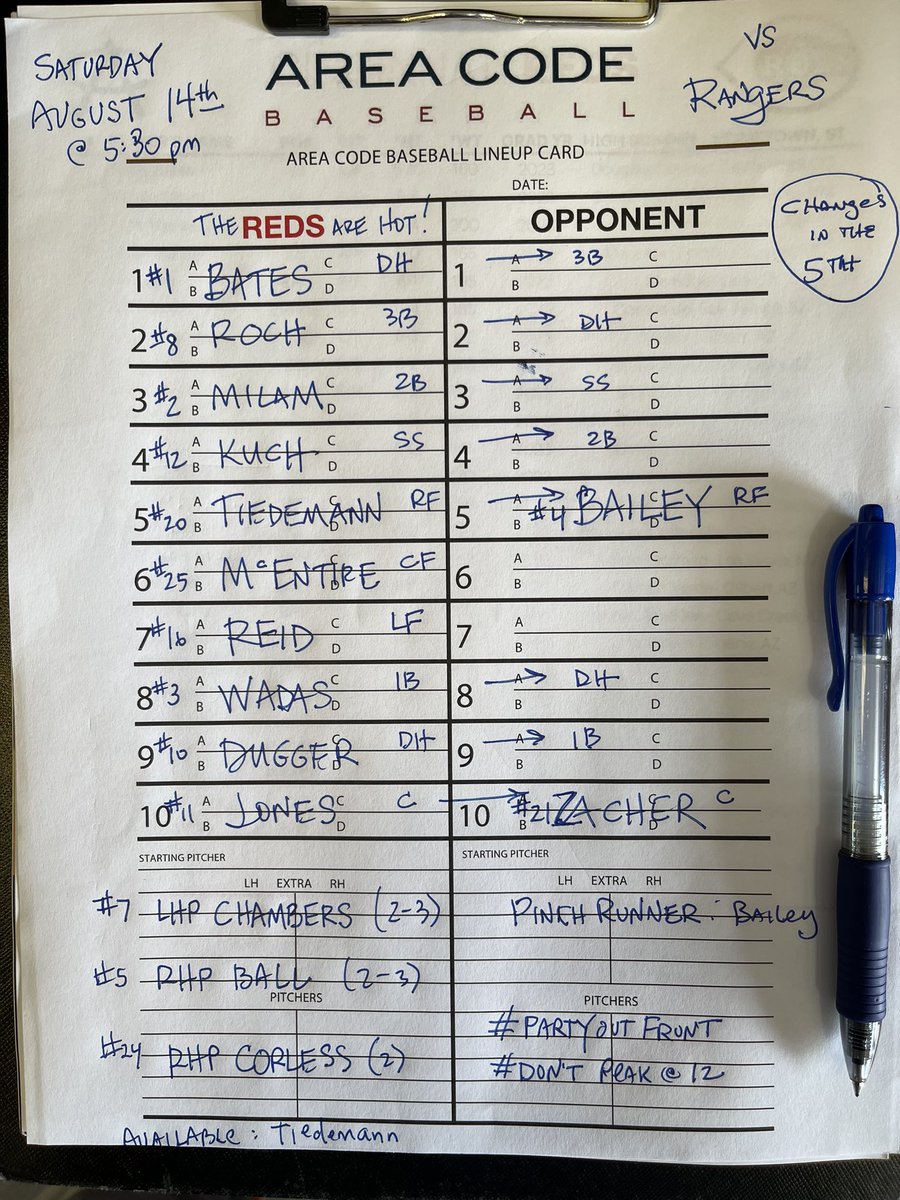 SATURDAY
AUGUST 14th
@ 5:30 pm
AREA CODE
BASEBALL
VS
RANGERS
AREA CODE BASEBALL LINEUP CARD
DATE:
THE REDS ARE HOT!
OPPONENT
CHANGES
IN THE
5TH
1 #1 A B BATES C D DH
1 A B → 3B C D
2 #8 A B ROCH C D 3B
2 A B → DH C D
3 #2 A B MILAM C D 2B
3 A B → SS C D
4 #12 A B KUCH C D SS
4 A B → 2B C D
5 #20 A B TIEDEMANN C D RF
5 A B → #4 BAILEY C D RF
6 #25 A B McENTIRE C D CF
6 A B C D
7 #16 A B REID C D LF
7 A B C D
8 #3 A B WADAS C D 1B
8 A B → DH C D
9 #10 A B DUGGER C D DH
9 A B → 1B C D
10 #11 A B JONES C D C →
10 A B #21 ZACHER C D C
STARTING PITCHER
STARTING PITCHER
LH EXTRA RH
LH EXTRA RH
#7 LHP CHAMBERS (2-3)
PINCH RUNNER: BAILEY
#5 RHP BALL (2-3)
PITCHERS
PITCHERS
#PARTYOUT FRONT
#24 RHP CORLESS (2)
#DON'T PEAK @ 12
AVAILABLE: Tiedemann